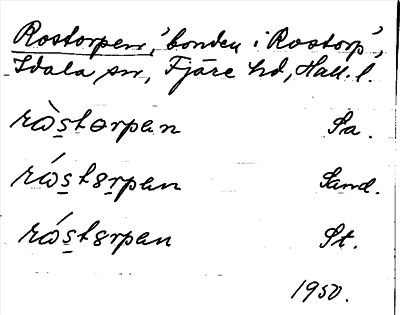 Rostorpen, 'bonden i Rostorp',
Idala sn, Fjäre hd, Hall. l.
Sa.
Sand.
St.
1950.